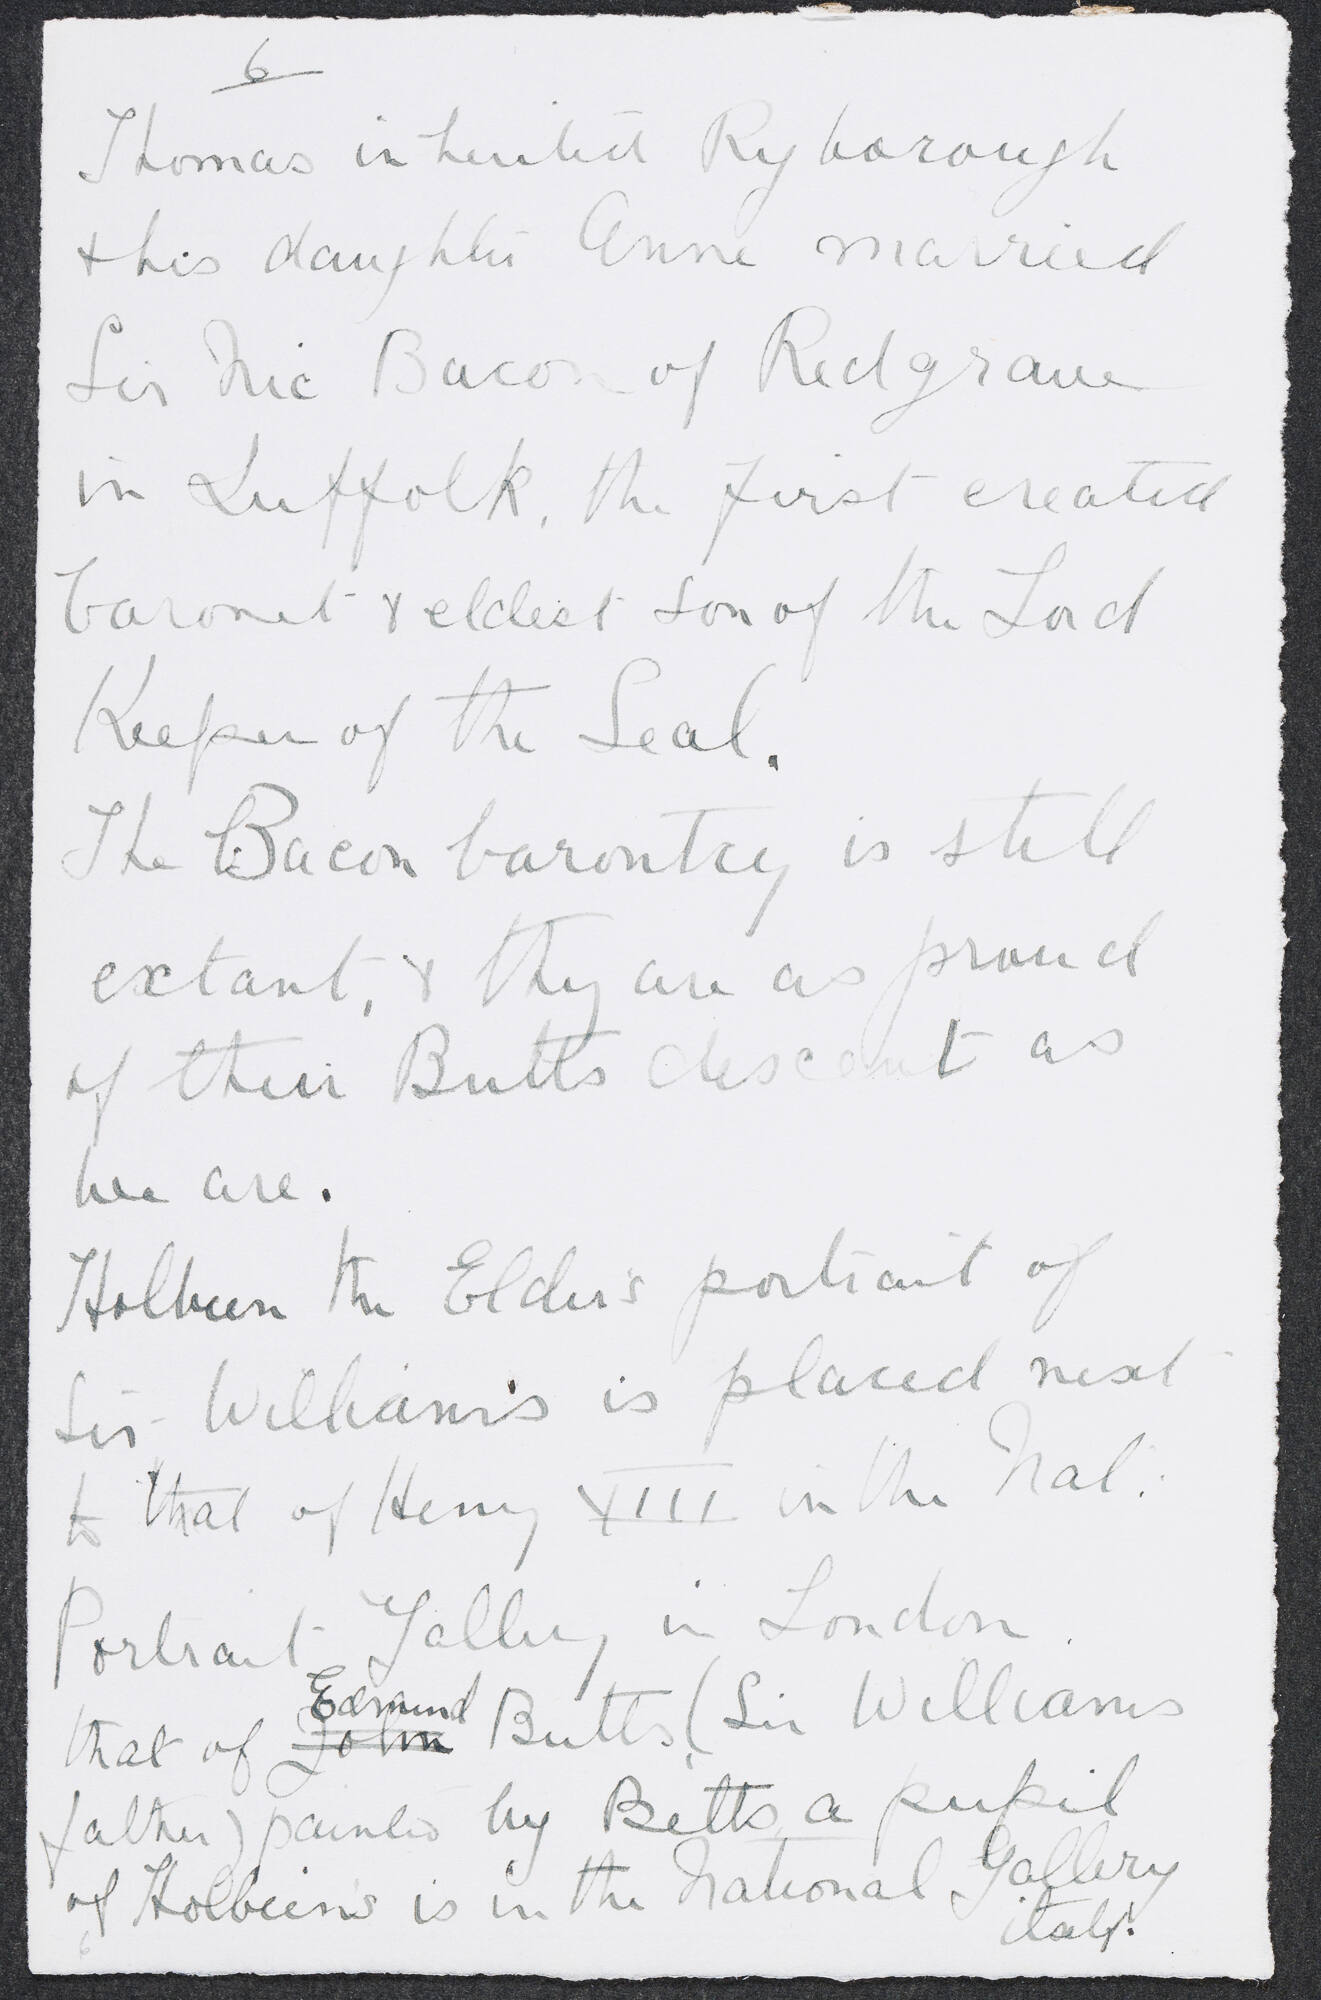 6
Thomas inherited Ryborough
& his daughter Anne married
Sir Nic Bacon of Redgrave
in Suffolk, the first created
baronet & eldest son of the Lord
Keeper of the Seal.
The Bacon barontcy is still
extant, & they are as proud
of their Butts descent as
we are.
Holbein the Elder's portrait of
Sir William's is placed next
to that of Henry XIII in the Nat.
Portrait Gallery in London.
Edmund
that of John Butts, (Sir Williams
father) painted by Betts, a pupil
of Holbein's is in the National Gallery
6